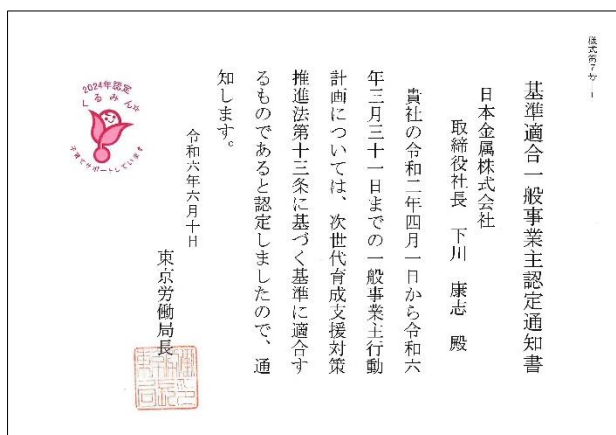 様式第7号
基準適合一般事業主認定通知書
日本金属株式会社
取締役社長 下川 康志 殿
貴社の令和二年四月一日から令和六
年三月三十一日までの一般事業主行動
計画については、次世代育成支援対策
推進法第十三条に基づく基準に適合す
るものであると認定しましたので、通
知します。
令和六年六月十日
東京労働局長
2024年認定
くるみん
子育てサポートしています